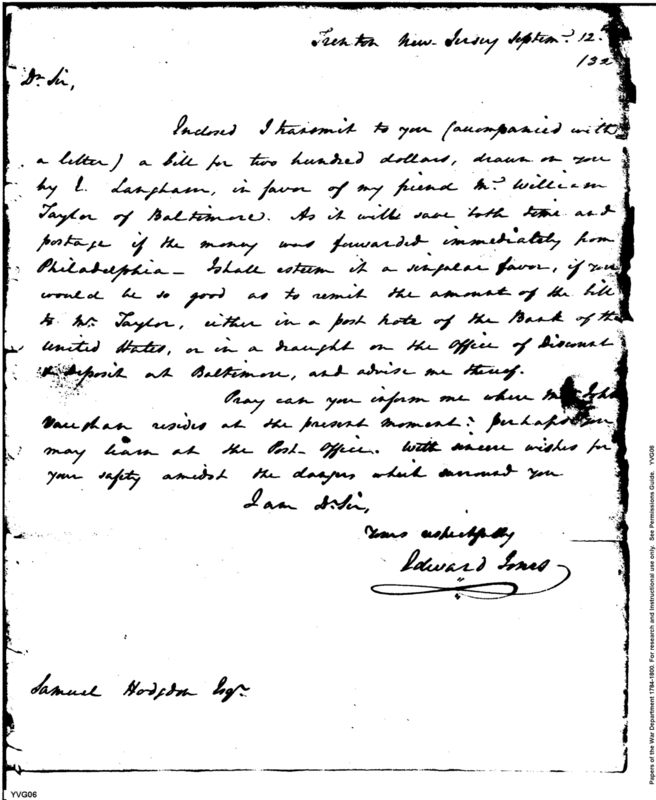 Trenton New-Jersey Septem.r 12.
Dr. Sir,
Enclosed I transmit to you (accompanied with
a letter) a bill for two hundred dollars, drawn on you
by E. Langham, in favor of my friend Mr. William
Taylor of Baltimore. As it will save both time and
postage if the money was forwarded immediately from
Philadelphia— I shall esteem it a singular favor, if you
would be so good as to remit the amount of the bill
to Mr. Taylor, either in a post note of the Bank of the
United States, or in a draught on the Office of Discount
& Deposit at Baltimore, and advise me thereof.
Pray can you inform me where Mr. John
Vaughan resides at the present moment? Perhaps you
may learn at the Post-Office. With sincere wishes for
your safety amidst the dangers which surround you
I am Dr. Sir,
Yours respectfully
Edward Jones
Samuel Hodgdon Esqr.
YVG06
Papers of the War Department 1784-1800. For research and instructional use only. See Permissions Guide. YVG06